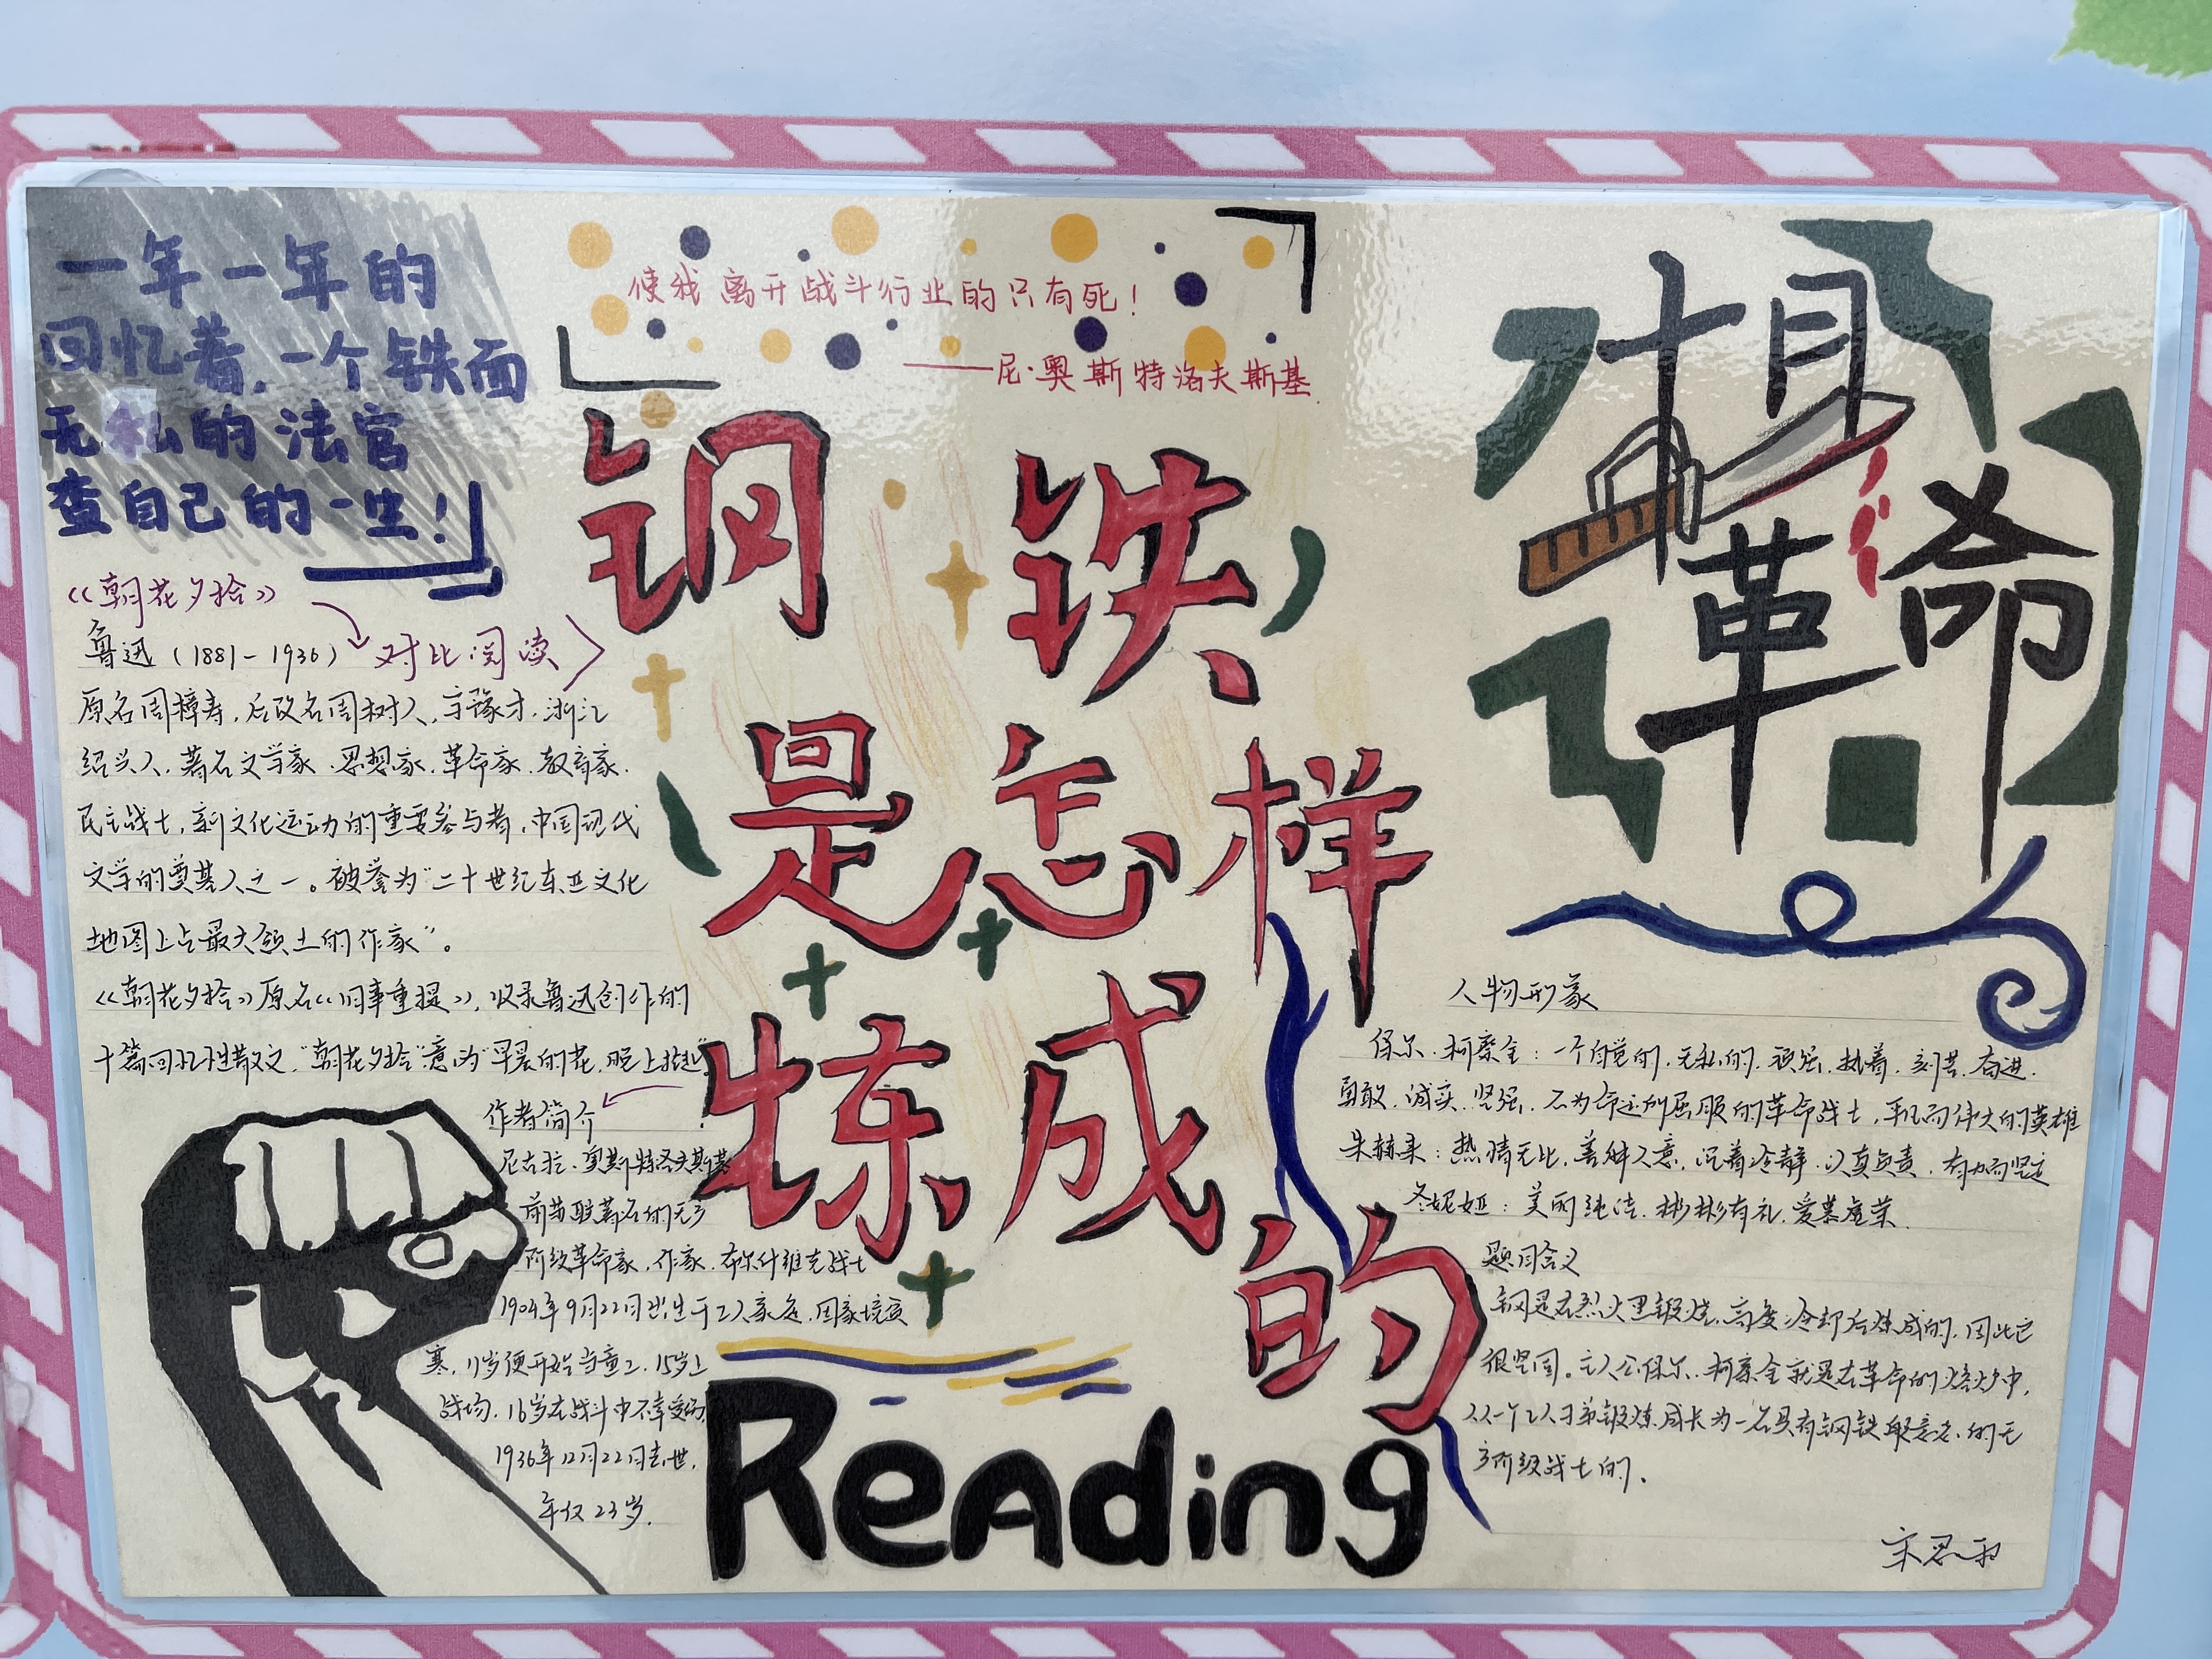 一年一年的
回忆着,一个铁面
无私的法官
查自己的一生!
使我离开战斗行业的只有死!
——尼·奥斯特洛夫斯基
钢铁
是怎样
炼成
的
Reading
《朝花夕拾》
鲁迅(1881-1936)
对比阅读
原名周樟寿,后改名周树人,字豫才,浙江
绍兴人,著名文学家.思想家.革命家.教育家.
民主战士,新文化运动的重要参与者,中国现代
文学的奠基人之一。被誉为"二十世纪东亚文化
地图上占最大领土的作家"。
《朝花夕拾》原名《旧事重提》,收录鲁迅创作的
十篇回忆性散文,"朝花夕拾"意为"早晨的花,晚上拾起"
作者简介
尼古拉·奥斯特洛夫斯基
前苏联著名的无产
阶级革命家,作家.布尔什维克战士
1904年9月22日出生于工人家庭,因家境贫
寒,11岁便开始当童工,15岁上
战场,16岁在战斗中不幸受伤,
1936年12月22日去世,
年仅23岁.
相
革命
人物形象
保尔.柯察金:一个自觉的,无私的,顽强,执着,刻苦,奋进,
勇敢,诚实,坚强,不为命运所屈服的革命战士,平凡而伟大的英雄
朱赫来:热情无比,善解人意,沉着冷静,认真负责,有力而坚定
冬妮娅:美丽纯洁,彬彬有礼,爱慕虚荣.
题目含义
钢是在烈火里锻烧,高度冷却后炼成的,因此它
很坚固。主人公保尔.柯察金就是在革命的熔炉中,
从一个工人子弟锻炼成长为一名具有钢铁般意志的无
产阶级战士的.